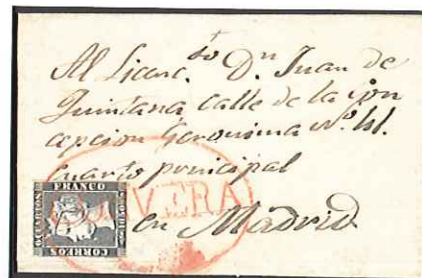 Al Licenc.do Dn Juan de
Quintana, calle de la con
cepcion Geronima No. 41.
cuarto principal
en Madrid
FRANCO
CORREOS